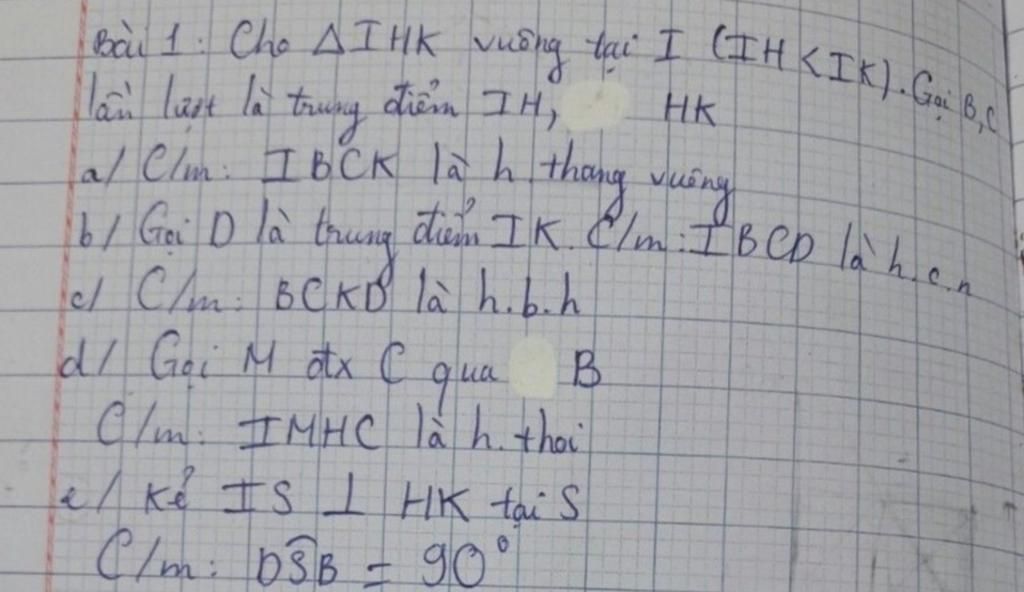 Bài 1: Cho ΔIHK vuông tại I (IH < IK). Gọi B, C
lần lượt là trung điểm IH, HK
a/ C/m: IBCK là h thang vuông
b/ Gọi D là trung điểm IK. C/m: IBCD là h.c.n
c/ C/m: BCKD là h.b.h
d/ Gọi M đtx C qua B
C/m: IMHC là h. thoi
e/ Kẻ IS ⊥ HK tại S
C/m: DŜB = 90°